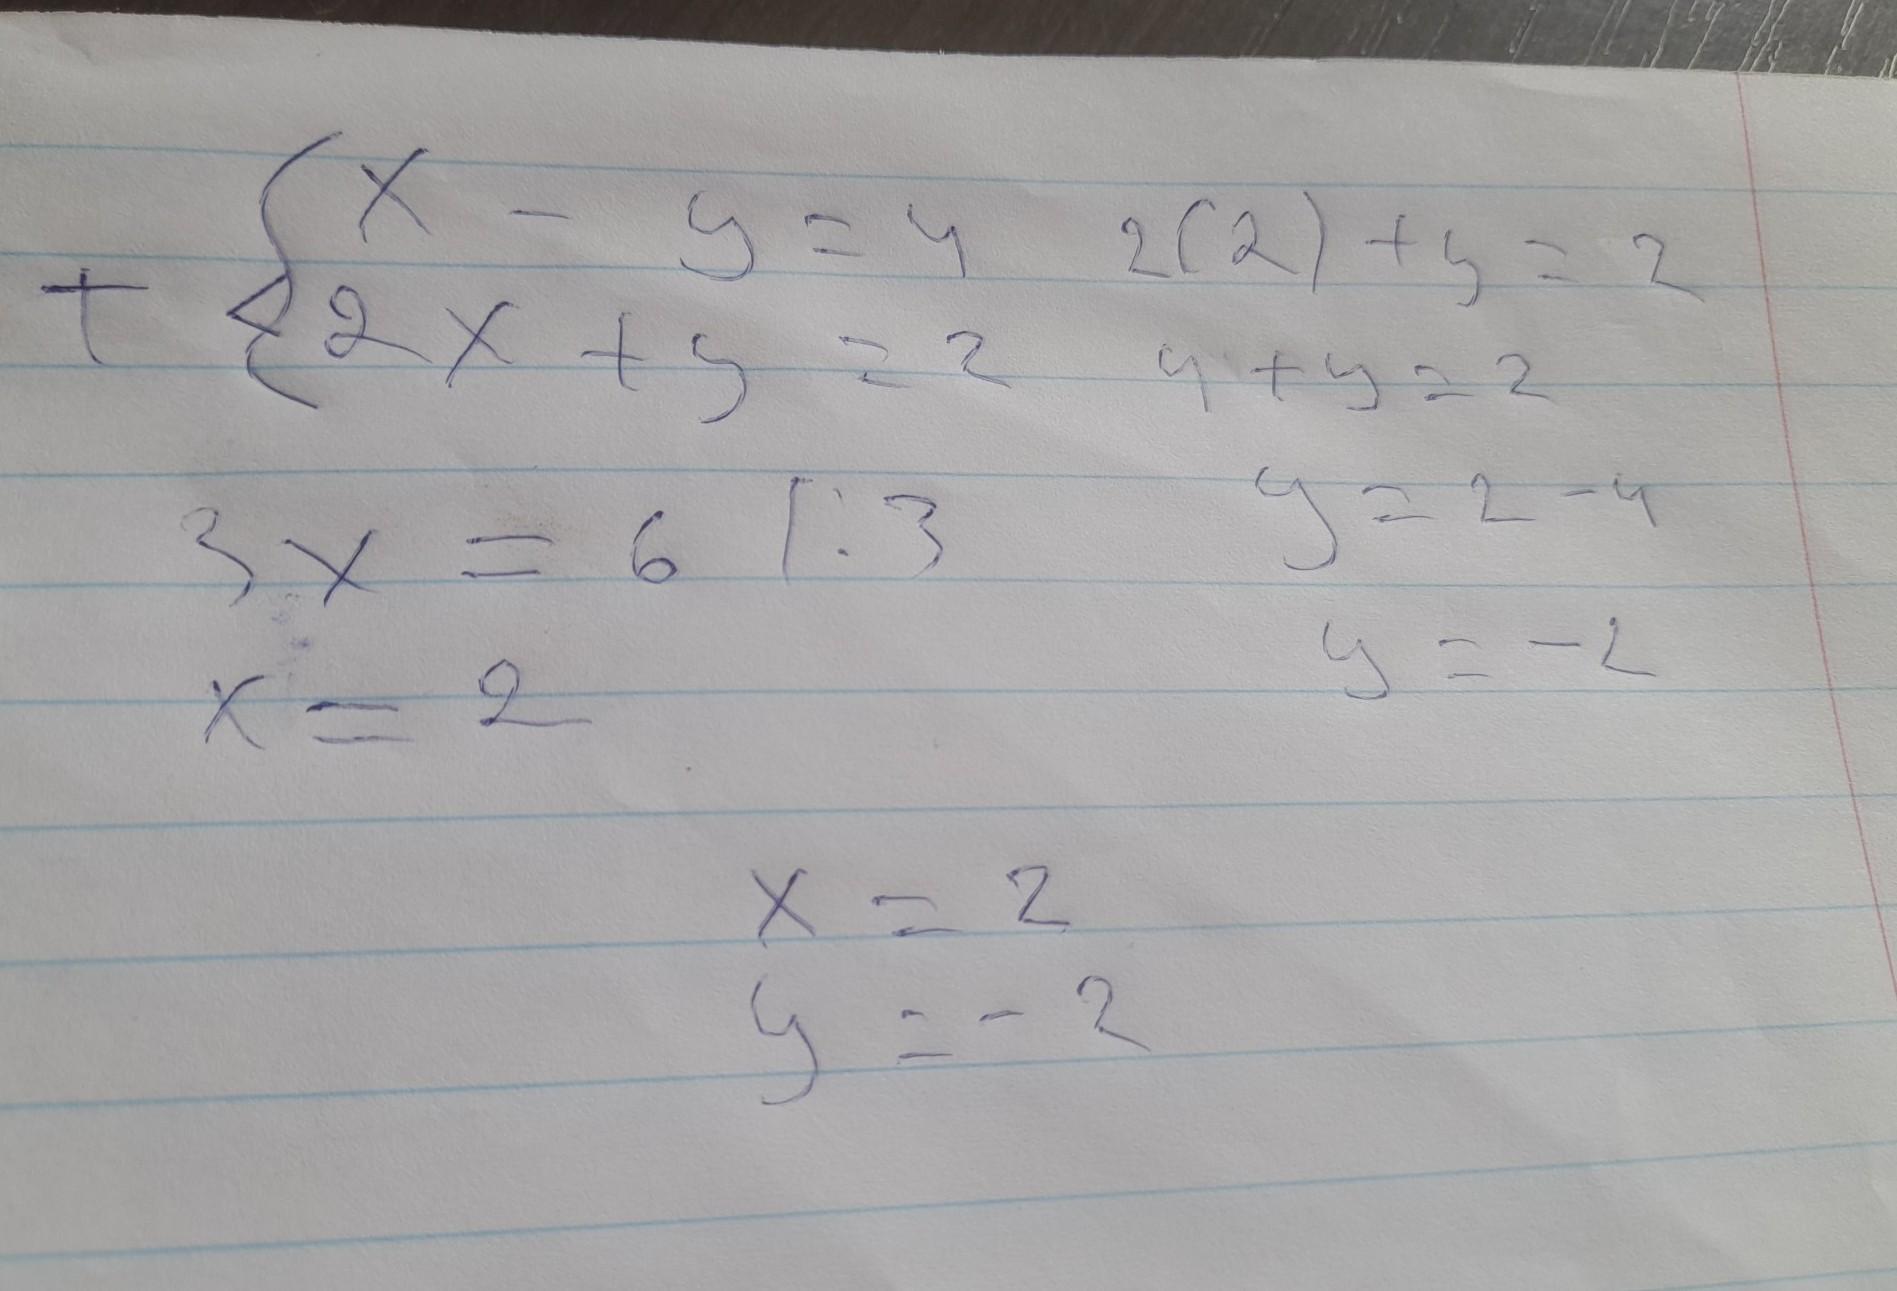 x - y = 4
+ { 2x + y = 2
3x = 6 |:3
x = 2
2(2) + y = 2
4 + y = 2
y = 2 - 4
y = -2
x = 2
y = -2